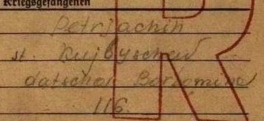 Kriegsgefangenen
Petrjachin
st. Kujbyschew
datscha Barbomina
116